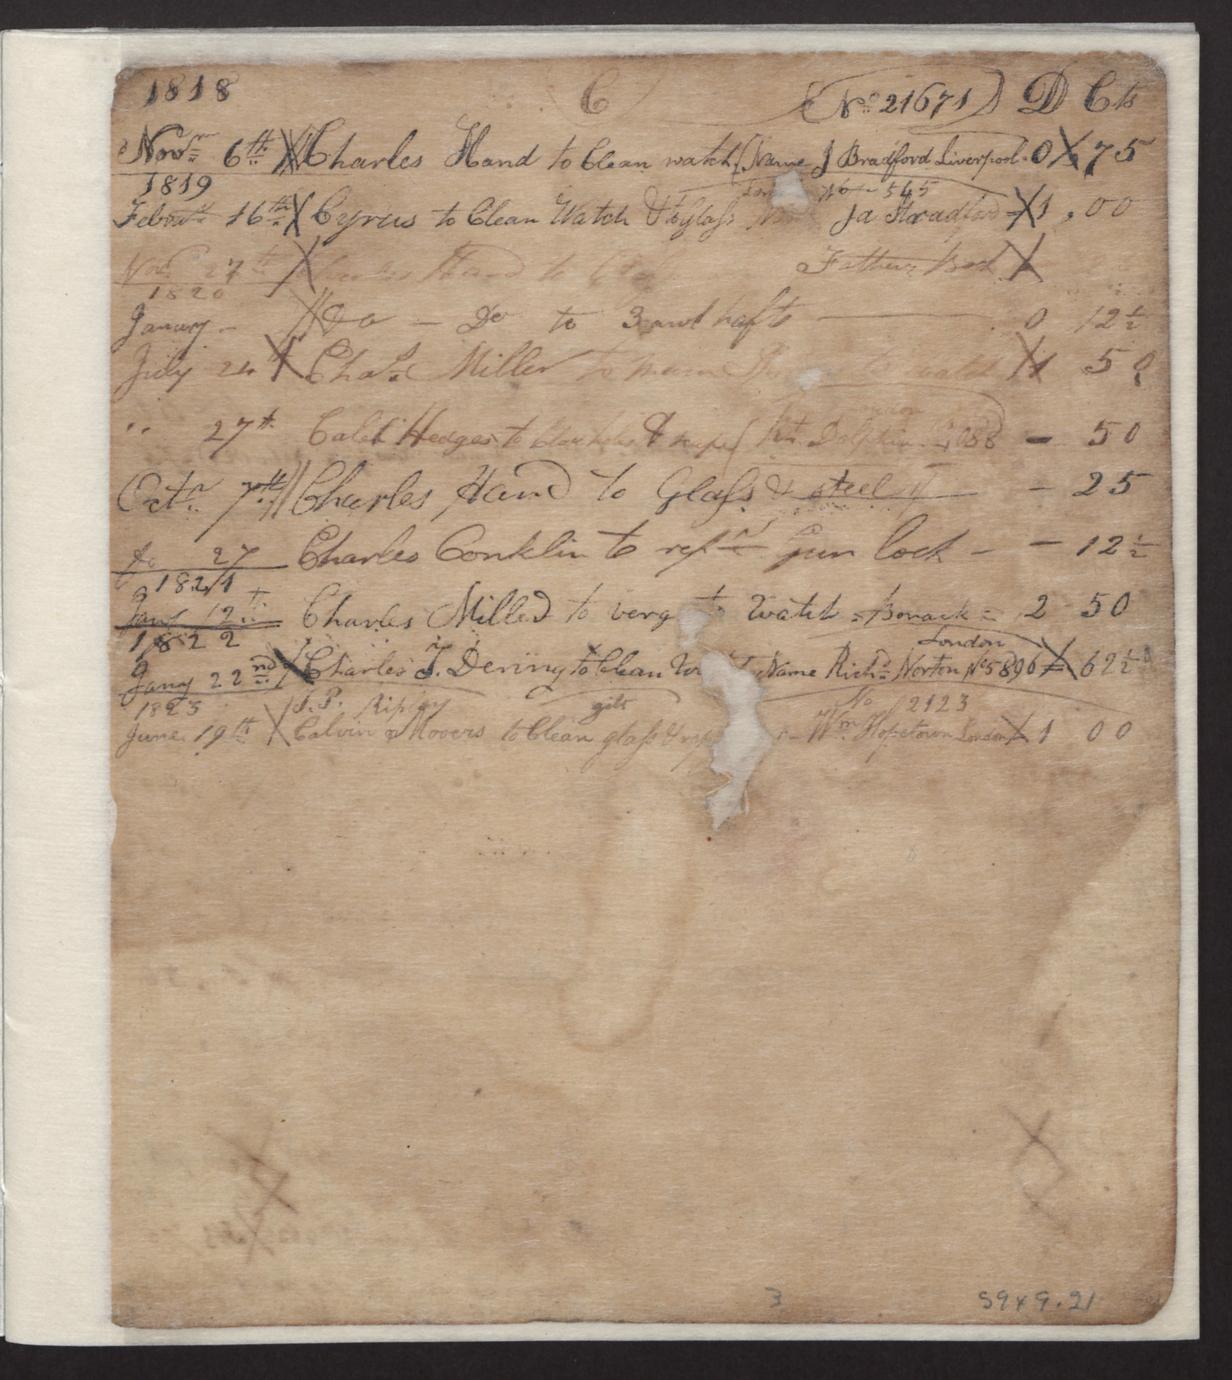 1818 C (No 21671) D Cts
Novr 6th Charles Hand to Clean watch (Name J Bradford Liverpool. 0 75
1819 No 545
Febru 16th Cyrus to Clean Watch & Glass Ja 1,00
Novr 27th Hand to
1820
January - Do - Do to 3 0 12½
July 24 Chas Miller to 1 50
" 27th Caleb Hedges to & Dolphin - 50
Octr 7th Charles Hand to Glass & steel - 25
do 27 Charles Conklin to repr Gun lock - - 12½
1821
Jany 12th Charles Miller to verg to Watch = = 2 50
1822 London
Jany 22nd Charles T. Dering to Clean Name Richd Norton No 5890 62½
1823 S. P. Ripley gilt No 2123
June 19th Calvin Moovers to Clean glass & Wm Hopetown London 1 00
3 59x9.21